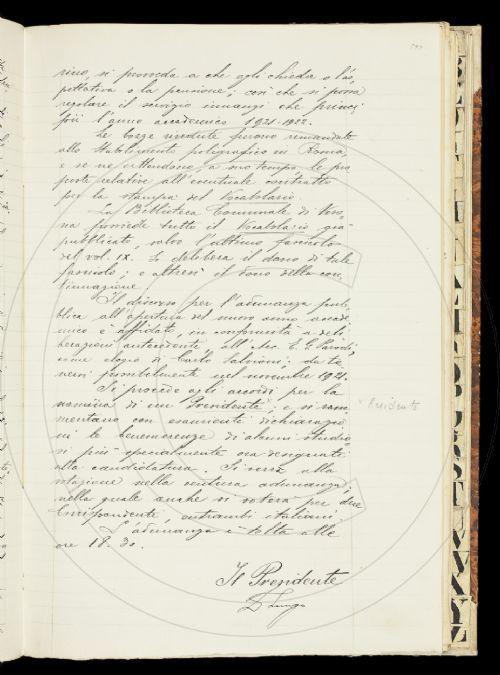 rino, si provveda a che egli chieda o l'as-
pettativa o la pensione; così che si possa
regolare il servizio innanzi che princi-
pii l'anno accademico 1921-1922.
Le bozze vedute furono rimandate
allo Stabilimento poligrafico in Roma,
e se ne attendono, a suo tempo le pro-
poste relative all'eventuale contratto
per la stampa del Vocabolario.
La Biblioteca Comunale di
possiede tutto il Vocabolario già
pubblicato, salvo l'ultimo fascicolo
del vol. IX. Si delibera il dono di tale
fascicolo; e altresì il dono della con-
tinuazione.
Il discorso per l'adunanza pub-
blica all'apertura del nuovo anno accade-
mico è affidato, in conformità a deli-
berazioni antecedenti all'Acc. E. G. Parodi,
come elogio di Carlo Salvioni; da te-
nersi possibilmente nel novembre 1921.
Si procede agli accordi per la
nomina di un "Presidente"; e si ram-
mentano con esaurienti dichiarazio-
ni le benemerenze di alcuni studio-
si più specialmente ora designati
alla candidatura. Si verrà alla
votazione nella ventura adunanza,
nella quale anche si voterà per due
Corrispondenti, entrambi italiani.
L'adunanza è tolta alle
ore 18.30.
Residente
Il Presidente
D Lungo
B
L
M
N
O
P
Q
R
S
T
U
V
X
Y
Z